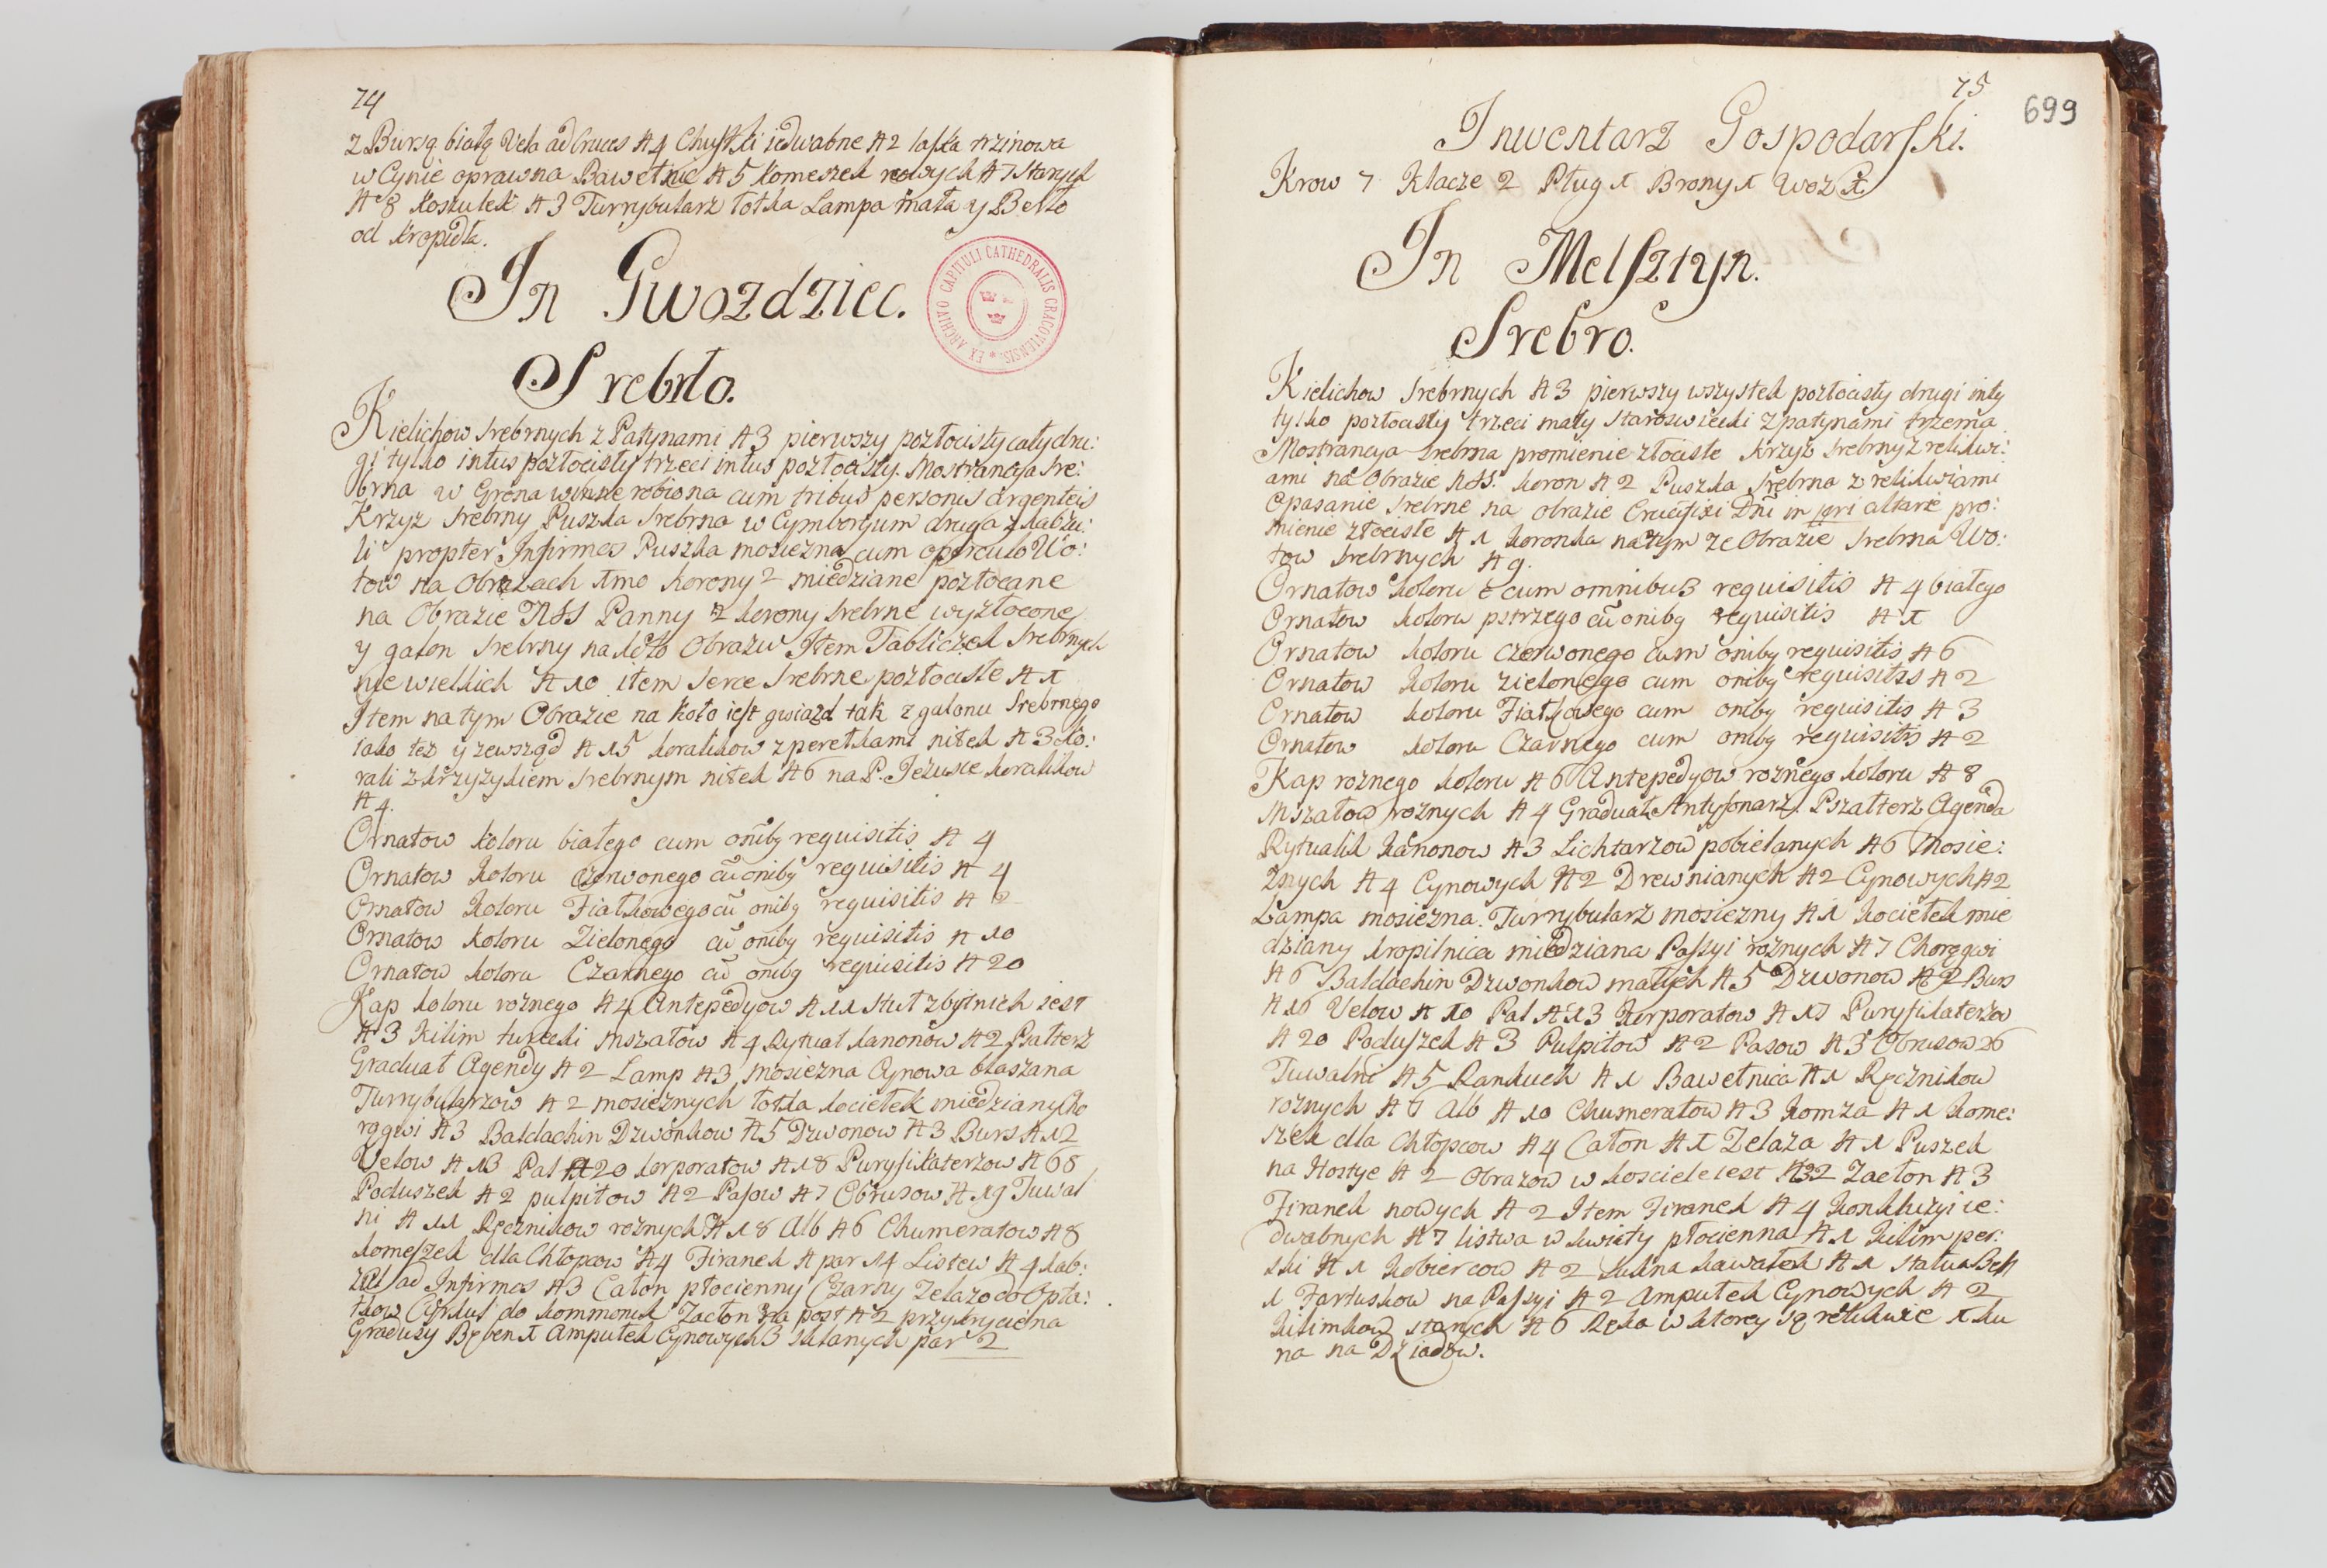 74
z Bursą białą Vela ad Cruces N 4 Chustki iedwabne N 2 laska trzinowa
w Cynie oprawna Bawełnic N 5 Komeszek nowych N 7 Starych
N 8 Koszulek N 3 Turrybularz łotka Lampa mała y Berło
od Kropidła.
In Gwozdziec.
EX ARCHIVO CAPITULI CATHEDRALIS CRACOVIENSIS *
Srebrło.
Kielichow srebrnych z Patynami N 3 pierwszy pozłocisty cały dru:
gi tylko intus pozłocisty trzeci intus pozłocisty. Mostrancya sre:
brna w Grona winne robiona cum tribus personis argenteis
Krzyz srebrny Puszka srebrna w Cymborium druga z kabzu:
li propter Infirmos Puszka mosiezna cum operculo Wo:
tow na Obrazach 1mo Korony 2 miedziane pozłocane
na Obrazie NSS Panny 2 korony srebrne wyzłocone
y galon srebrny na koło Obrazu Item Tabliczek srebrnych
nie wielkich N 10 item serce srebrne pozłociste N 1
Item na tym Obrazie na koło iest gwiazd tak z galonu Srebrnego
iako tez y zewsząd N 15 koralikow z perełkami nitek N 3 Ko:
rali z krzyzykiem srebrnym nitek N 6 na P. Jezusie koralikow
N 4.
Ornatow koloru białego cum oniby requisitis N 4
Ornatow koloru czerwonego cū oniby requisitis N 4
Ornatow koloru Fiatkowego cū oniby requisitis N
Ornatow koloru Zielonego cū oniby requisitis N 10
Ornatow koloru Czarnego cū oniby requisitis N 20
Kap koloru roznego N 4 Antepedyow N 11 Stuł zbytnich iest
N 3 Kilim turecki Mszałow N 4 Rytuał kanonow N 2 Psałterz
Graduał Agendy N 2 Lamp N 3 mosiezna Cynowa blaszana
Turrybularzow N 2 mosieznych łotka kociełek miedziany Cho
rągwi N 3 Baldachin Dzwonkow N 5 Dzwonow N 3 Burs N 12
Velow N 13 Pal N 20 korporałow N 18 Puryfikaterzow N 68
Poduszek N 2 pulpitow N 2 Pasow N 7 Obrusow N 19 Tuwal
ni N 11 Ręcznikow roznych N 18 Alb N 6 Chumerałow N 8
komeszek dla Chłopcow N 4 Firanek N par 14 Listew N 4 kab:
zul ad Infirmos N 3 Całon płocienny Czarny Zelazo do Opła:
tkow Cyrkul do kommonik Zacłon na post N 2 przykrycie na
Gradusy Bęben 1 Ampułek Cynowych 3 szklanych par 2
75
699
Inwentarz Gospodarski.
Krow 7 Klacze 2 Pług 1 Brony 1 Woz 1
In Melsztyn.
Srebro.
Kielichow srebrnych N 3 pierwszy wszystek pozłocisty drugi inty
tylko pozłocisty trzeci mały staroswiecki z patynami trzema
Mostrancya srebrna promienie złociste krzyz srebrny z relikwi:
ami na Obrazie NSS. koron N 2 Puszka srebrna z relikwiami
Opasanie srebrne na obrazie Crucifixi Dni in altarie pro:
mienie złociste N 1 koronka na tym ze Obrazie srebrna Wo:
tow srebrnych N 9.
Ornatow koloru cum omnibus requisitis N 4 białego
Ornatow koloru pstrzego cū oniby requisitis N 1
Ornatow koloru czerwonego cum oniby requisitis N 6
Ornatow koloru zielonego cum oniby requisitis N 2
Ornatow koloru Fiałkowego cum oniby requisitis N 3
Ornatow koloru Czarnego cum oniby requisitis N 2
Kap roznego koloru N 6 Antepedyow roznego koloru N 8
Mszałow roznych N 4 Graduał Antyfonarz. Pszałterz Agenda
Rytualik kanonow N 3 Lichtarzow pobielanych N 6 Mosie:
znych N 4 Cynowych N 2 Drewnianych N 2 Cynowych N 2
Lampa mosiezna. Turrybularz mosiezny N 1 kociełek mie
dziany kropilnica miedziana Passyi roznych N 7 Choręgwi
N 6 Baldachin Dzwonkow małych N 5 Dzwonow N 2 Burs
N 16 Velow N 10 Pal N 13 korporałow N 17 Puryfikaterzow
N 20 Poduszek N 3 Pulpitow N 2 Pasow N 3 Obrusow 26
Tuwalni N 5 Rankuch N 1 Bawełnica N 1 Ręcznikow
roznych N 7 Alb N 10 Chumerałow N 3 komza N 1 kome:
szek dla Chłopcow N 4 Całon N 1 Zelaza N 1 Puszek
na Hostye N 2 Obrazow w kosciele iest N 32 Zacłon N 3
Firanek nowych N 2 Item Firanek N 4 konkluzyi ie:
dwabnych N 7 listwa w kwiaty płocienna N 1 kilim per:
ski N 1 kobiercow N 2 sukna kawałek N 1 statua
1 Fartuskow na Passyi N 2 Ampułek Cynowych N 2
kilimkow starych N 6 Ręka w ktorey są relikwie 1 ku
na na Dziadow.